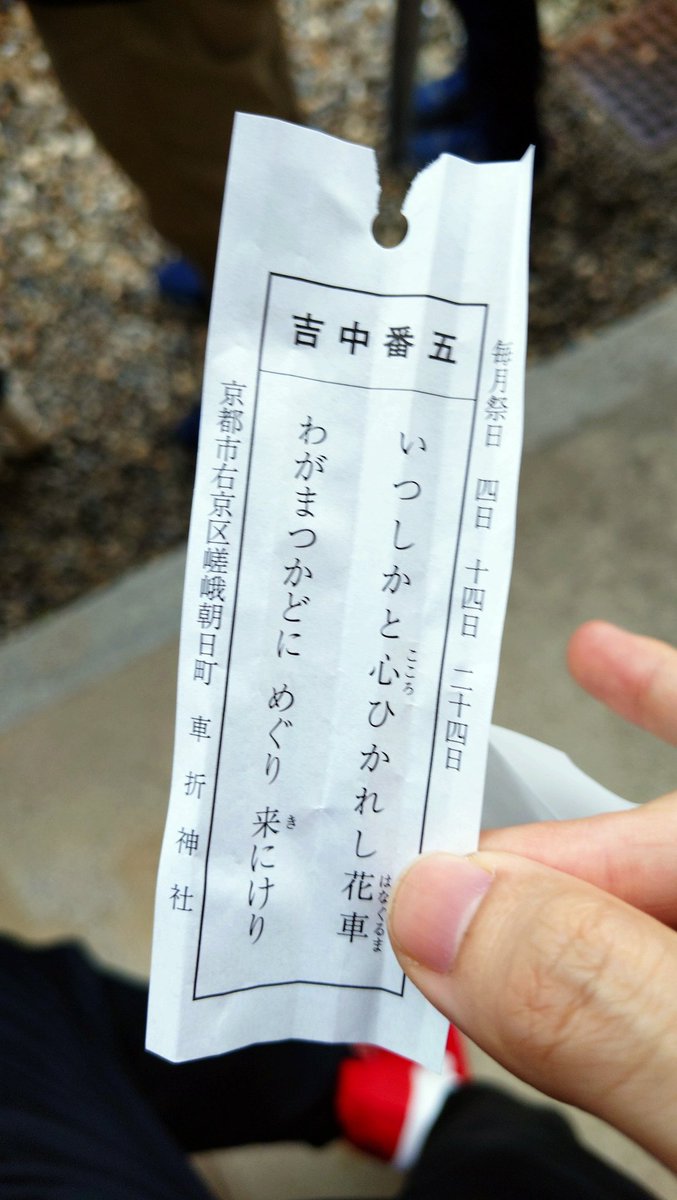 毎月祭日 四日 十四日 二十四日
五番中吉
いつしかと心ひかれし花車
こころ
はなぐるま
わがまつかどに めぐり 来にけり
き
京都市右京区嵯峨朝日町 車折神社